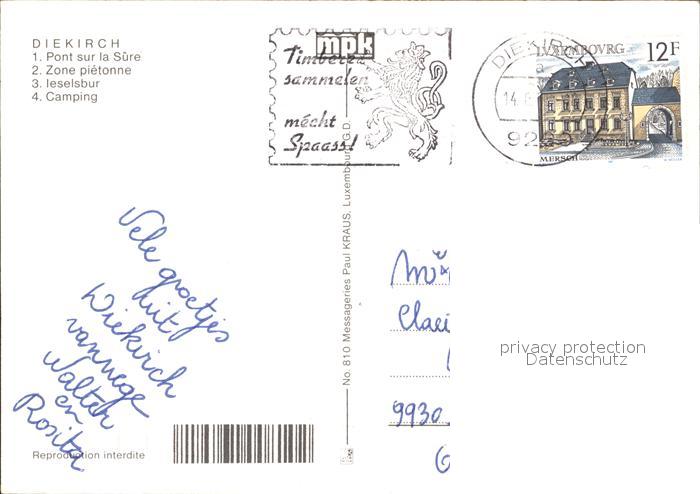 DIEKIRCH
1. Pont sur la Sûre
2. Zone piétonne
3. Ieselsbur
4. Camping
mpk
Timberen
sammelen
mécht
Spaass!
DIEKIRCH
a
14.
LUXEMBOURG
12F
MERSCH
No. 810 Messageries Paul KRAUS, Luxembourg G.D.
Vele groetjes
uit
Diekirch
vanwege
Walter
en
Rosita
9930
privacy protection
Datenschutz
Reproduction interdite